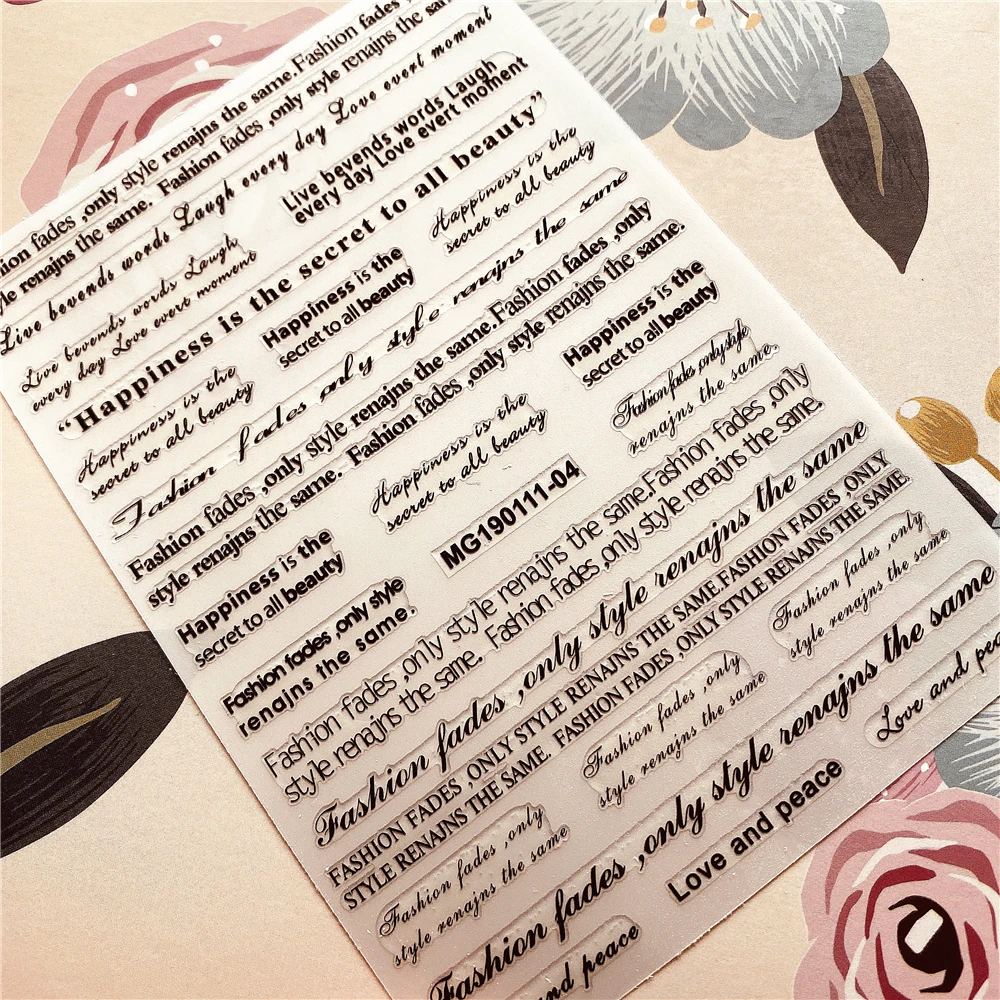 Fashion fades
hion fades ,only style renajns the same.Fashion fades
le renajns the same. Fashion fades ,only style renajns the sam
Live bevends words Laugh every day Love evert moment
Live bevends words Laugh
every day Love evert moment
Live bevends words Laugh
every day Love evert moment
“Happiness is the secret to all beauty”
Happiness is the
secret to all beauty
Happiness is the
secret to all beauty
Happiness is the
secret to all beauty
Fashion fades only style renajns the same
Fashion fades ,only style renajns the same.Fashion fades ,only
style renajns the same. Fashion fades ,only style renajns the same.
Happiness is the
secret to all beauty
Happiness is the
secret to all beauty
Fashion fades ,only style
renajns the same.
Happiness is the
secret to all beauty
MG190111-04
Fashion fades ,only style
renajns the same.
Fashion fades ,only style renajns the same.Fashion fades ,only
style renajns the same. Fashion fades ,only style renajns the same.
Fashion fades ,only style renajns the same
FASHION FADES ,ONLY STYLE RENAJNS THE SAME.FASHION FADES ,ONLY
STYLE RENAJNS THE SAME. FASHION FADES ,ONLY STYLE RENAJNS THE SAME.
Fashion fades ,only
style renajns the same
Fashion fades ,only
style renajns the same
Fashion fades ,only
style renajns the same
Fashion fades ,only style renajns the same
Love and pea
Love and peace
nd peace